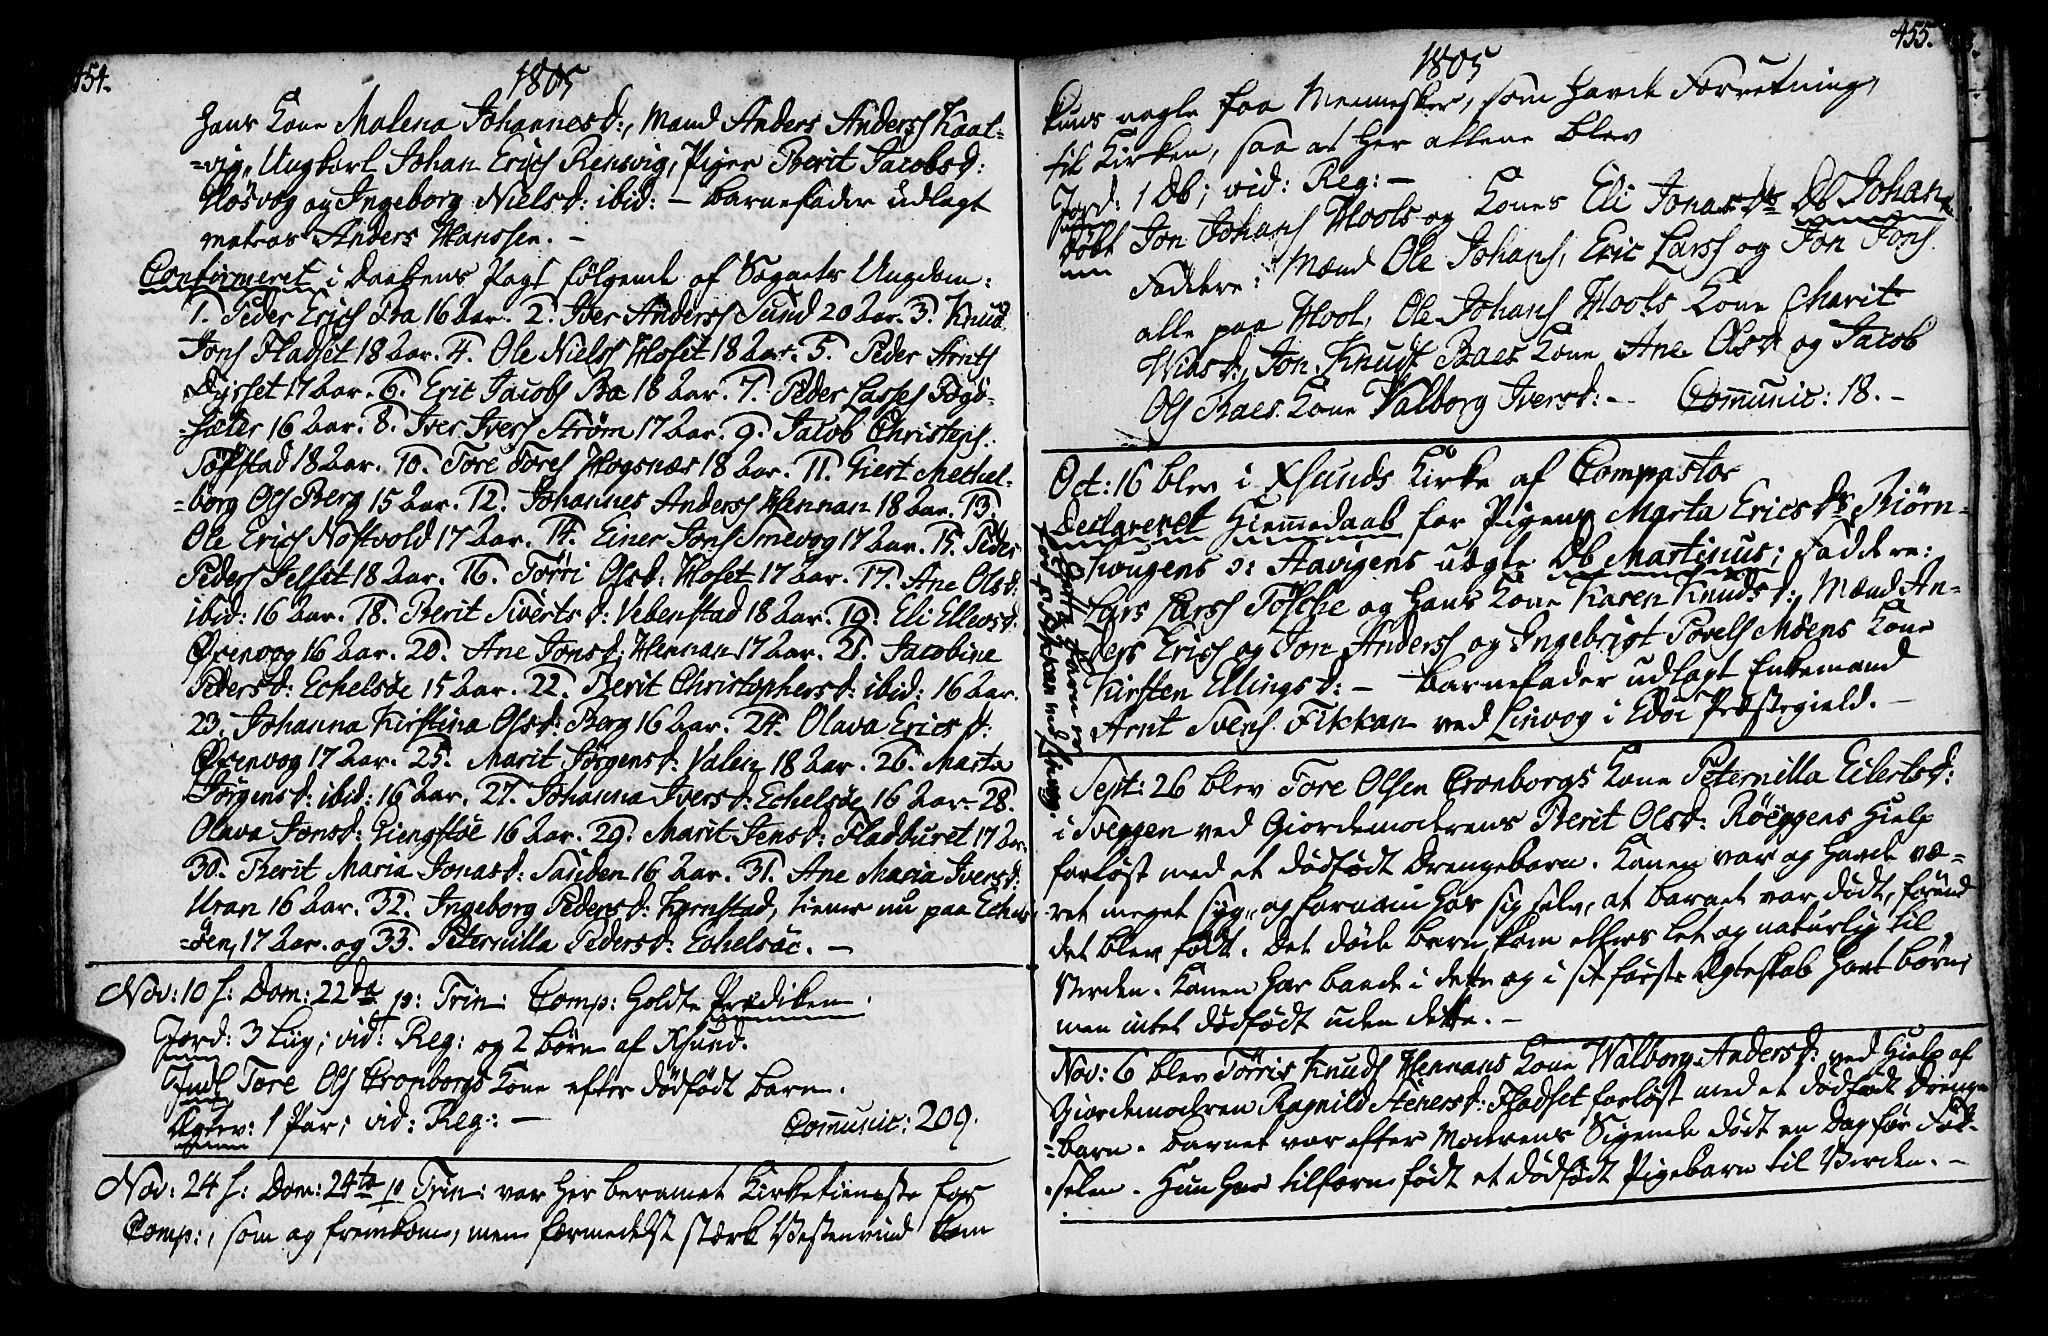 454.
1805
hans Kone Malena Johannesd:, Mand Anders Anderss Kaat-
=vig, Ungkarl Johan Erics Rensvig, Piger Berit Jacobsd:
Høsvog og Ingeborg Nielsd: ibid: – Barnefader udlagt
matros Anders Hanssen. –
Confirmeret i Daabens Pagt følgende af Sognets Ungdom:
1. Peder Erics Bra 16 Aar. 2. Iver Anderss Sund 20 Aar. 3. Knud
Jons Fladset 18 Aar. 4. Ole Niels Hoset 18 Aar. 5. Peder Arnts
Dyrset 17 Aar. 6. Eric Jacobs Bra 18 Aar. 7. Peder Lasses Fogø-
=sæter 16 Aar. 8. Iver Ivers Strøm 17 Aar. 9. Jacob Christens.
Tøfstad 18 Aar. 10. Tore Tores Hogsnæs 18 Aar. 11. Giert Mechel-
=borg Ols Berg 15 Aar. 12. Johannes Anderss Hennan 18 Aar. 13.
Ole Erics Nostvold 17 Aar. 14. Einer Jons Smevog 17 Aar. 15. Peder
Peders Selset 18 Aar. 16. Tørri Olsd: Hoset 17 Aar. 17. Ane Olsd:
ibid: 16 Aar. 18. Berit Sivertsd: Vebenstad 18 Aar. 19. Eli Ellevsd:
Ørenvog 16 Aar. 20. Ane Jonsd: Hennan 17 Aar. 21. Jacobine
Pedersd: Echelsøe 15 Aar. 22. Berit Christophersd: ibid: 16 Aar.
23. Johanna Kirstina Olsd: Berg 16 Aar. 24. Olava Ericsd:
Ørenvog 17 Aar. 25. Marit Jørgensd: Valen 18 Aar. 26. Marta
Jørgensd: ibid: 16 Aar. 27. Johanna Iversd: Echelsøe 16 Aar. 28.
Olava Jonsd: Giengstøe 16 Aar. 29. Marit Jensd: Fladburet 17 Aar.
30. Berit Maria Jonasd: Sanden 16 Aar. 31. Ane Maria Iversd:
Uran 16 Aar. 32. Ingeborg Pedersd: Kornstad, tiener nu paa Echels-
=øen, 17 Aar. og 33. Peternilla Pedersd: Echelsøe. –
Nov: 10 f: Dom: 22da p: Trin: Comp: holdte Prædiken.
Jord: 3 Liig; vid: Reg: og 2 Børn af Xsund.
Indl Tore Ols Cronborgs Kone efter dødfødt Barn.
Ægtev: 1 Par; vid: Reg: – Communic: 209.
Nov: 24 f: Dom: 24ta p Trin: var her berammet Kirketieneste for
Comp:, som og fremkom, men formedelst stærk Vestenvind kom
455.
1805
kuns nogle faa Mennesker, som havde Forretning
til Kirken, saa at her allene blev
Jord: 1 Db; vid: Reg: –
døbt Jon Johans Hools og Kones Eli Jonasdr Db Johan
Faddere: Mænd Ole Johans, Eric Larss og Jon Jons
alle paa Hool, Ole Johans Hools Kone Charit
Wibsd:, Jon Knuds Baes Kone Ane Olsd og Jacob
Ols Baes Kone Valborg Iversd: – Communic: 18. –
Oct: 16 blev i Xsunds Kirke af Compastor
declareret Hiemmedaab for Pigen Marta Ericsdr Biørn-
skougens ɔ: Aavigens uægte Db Martinus; Faddere:
Lars Larss Tøsche og hans Kone Karen Knudsd:, Mænd An-
ders Erics og Jon Anderss og Ingebrigt Povels Møens Kone
Kirsten Ellingsd: – Barnefader udlagt Enkemand
Arnt Svens. Fikkan ved Linvog i Edøe Præstegield. –
Sept: 26 blev Tore Olsen Cronborgs Kone Peternilla Eilertsd:
i Sveggen ved Giordemoderens Berit Olsd: Røeggens Hielp
forløst med et dødfødt Drengebarn. Konen var og havde væ-
ret meget syg, og fornam hos sig selv, at Barnet var dødt, førend
det blev født. Det døde Barn kom ellers let og naturlig til
Verden. Konen har baade i dette og i sit første Ægteskab havt Børn,
men intet dødfødt uden dette. –
Nov: 6 blev Tørris Knuds Hennans Kone Walborg Andersd: ved Hielp af
Giordemoderen Ragnild Stenersd: Fladset forløst med et dødfødt Drenge-
=barn. Barnet var efter Moderens Sigende dødt en Dag før Fød-
selen. Hun har tilforn født et dødfødt Pigebarn til Verden. –